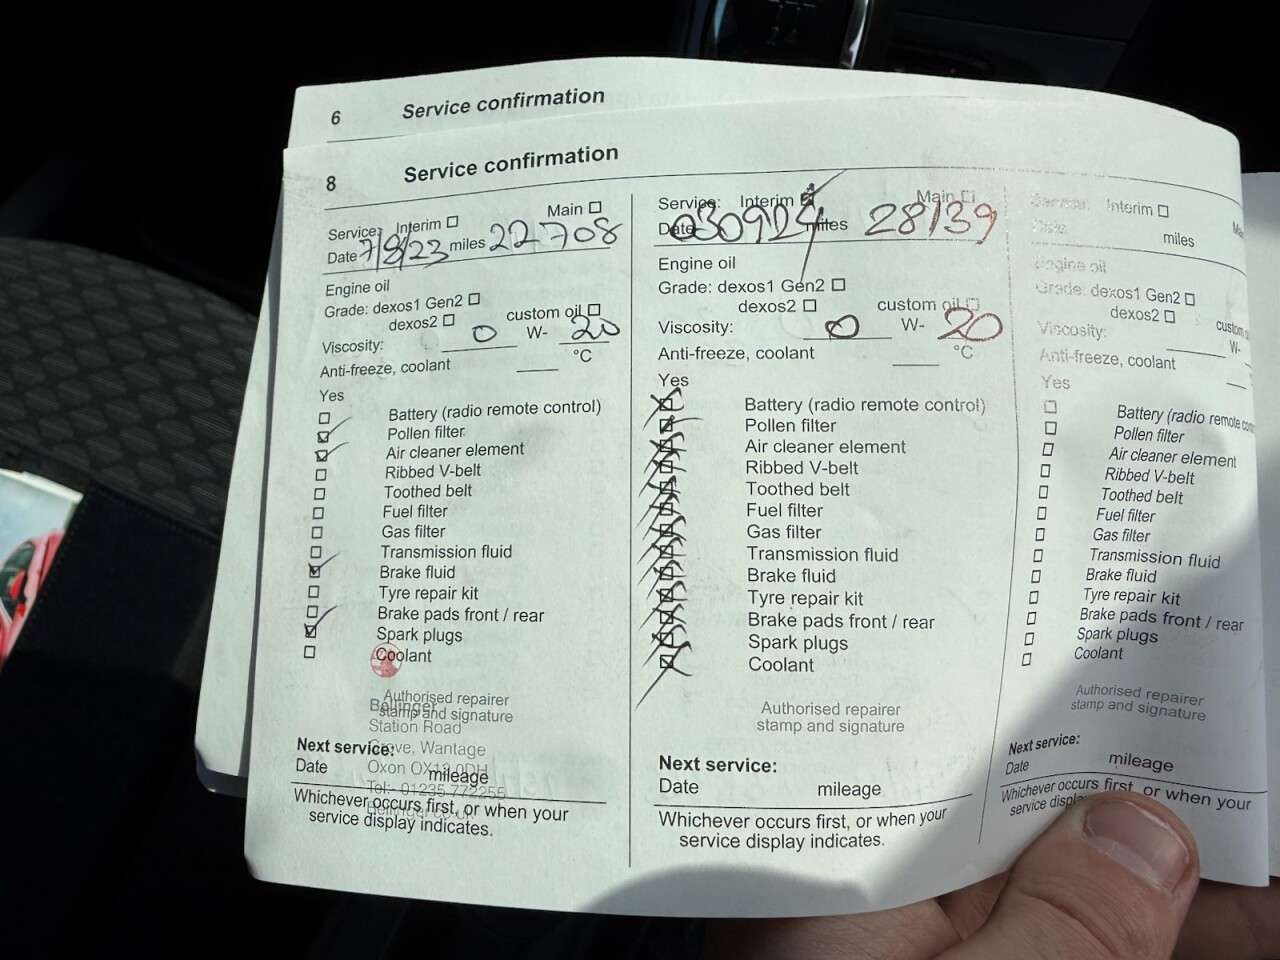 6 Service confirmation
8 Service confirmation
Service: Interim Main
Date 7/8/23 miles 22708
Engine oil
Grade: dexos1 Gen2
dexos2 custom oil
Viscosity: 0 W- 20
Anti-freeze, coolant °C
Yes
Battery (radio remote control)
Pollen filter
Air cleaner element
Ribbed V-belt
Toothed belt
Fuel filter
Gas filter
Transmission fluid
Brake fluid
Tyre repair kit
Brake pads front / rear
Spark plugs
Coolant
Authorised repairer
stamp and signature
Bellinger
Station Road
Grove, Wantage
Oxon OX12 0DH
Tel:- 01235 772255
Next service:
Date mileage
Whichever occurs first, or when your
service display indicates.
Service: Interim Main
Date 030924 miles 28139
Engine oil
Grade: dexos1 Gen2
dexos2 custom oil
Viscosity: 0 W- 20
Anti-freeze, coolant °C
Yes
Battery (radio remote control)
Pollen filter
Air cleaner element
Ribbed V-belt
Toothed belt
Fuel filter
Gas filter
Transmission fluid
Brake fluid
Tyre repair kit
Brake pads front / rear
Spark plugs
Coolant
Authorised repairer
stamp and signature
Next service:
Date mileage
Whichever occurs first, or when your
service display indicates.
Service: Interim
Date miles
Engine oil
Grade: dexos1 Gen2
dexos2 custom
Viscosity: W-
Anti-freeze, coolant
Yes
Battery (radio remote
Pollen filter
Air cleaner element
Ribbed V-belt
Toothed belt
Fuel filter
Gas filter
Transmission fluid
Brake fluid
Tyre repair kit
Brake pads front / rear
Spark plugs
Coolant
Authorised repairer
stamp and signature
Next service:
Date mileage
Whichever occurs first, or when your
service